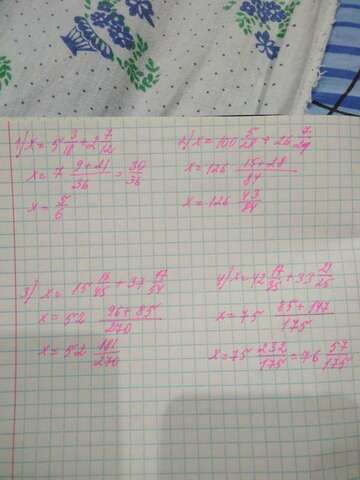 1) x = 5 3/18 + 2 7/12
x = 7 9+21/36 = 30/36
x = 5/6
2) x = 100 5/28 + 26 7/21
x = 126 15+28/84
x = 126 43/84
3) x = 15 16/45 + 37 17/54
x = 52 96+85/270
x = 52 181/270
4) x = 42 17/35 + 33 21/25
x = 75 85+147/175
x = 75 232/175 = 76 57/175